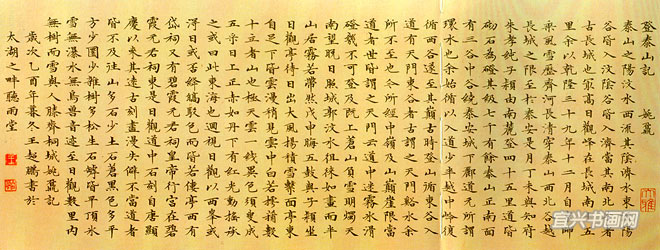 登泰山記 姚鼐
泰山之陽汶水西流其陰濟水東流陽
谷皆入汶陰谷皆入濟當其南北分者
古長城也最高日觀峰在長城南十五
里余以乾隆三十九年十二月自京師
乘風雪歷齊河長清穿泰山西北谷越
長城之限至於泰安是月丁未與知府
朱孝純子潁由南麓登四十五里道皆
砌石為磴其級七千有餘泰山正南面
有三谷中谷繞泰安城下酈道元所謂
環水也余始循以入道少半越中嶺復
循西谷遂至其巔古時登山循東谷入
道有天門東谷者古謂之天門谿水余
所不至也今所經中嶺及山巔崖限當
道者世皆謂之天門云道中迷霧冰滑
磴幾不可登及既上蒼山負雪明燭天
南望晚日照城郭汶水徂徠如畫而半
山居霧若帶然戊申晦五鼓與子潁坐
日觀亭待日出大風揚積雪擊面亭東
自足下皆雲漫稍見雲中白若摴蒱數
十立者山也極天雲一線異色須臾成
五采日上正赤如丹下有紅光動搖承
之或曰此東海也迴視日觀以西峰或
得日或否絳皜駁色而皆若僂亭西有
岱祠又有碧霞元君祠皇帝行宮在碧
霞元君祠東是日觀道中石刻自唐顯
慶以來其遠古刻盡漫失僻不當道者
皆不及往山多石少土石蒼黑色多平
方少圜少雜樹多松生石罅皆平頂冰
雪無瀑水無鳥獸音迹至日觀數里內
無樹而雪與人膝齊桐城姚鼐記
歲次乙酉年暮冬王超鵬書於
太湖之畔聽雨堂
宜兴书画网